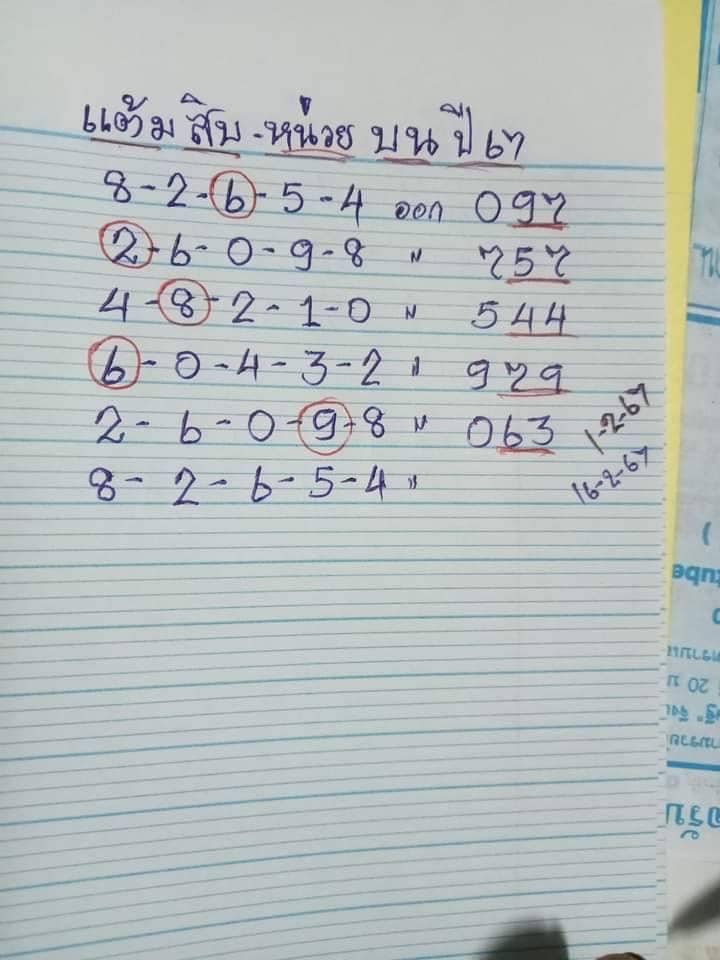 แต้ม สิบ-หน่วย บน ปี 67
8-2-6-5-4 ออก 097
2-6-0-9-8 " 757
4-8-2-1-0 " 544
6-0-4-3-2 " 979
2-6-0-9-8 " 063 1-2-67
8-2-6-5-4 " 16-2-67